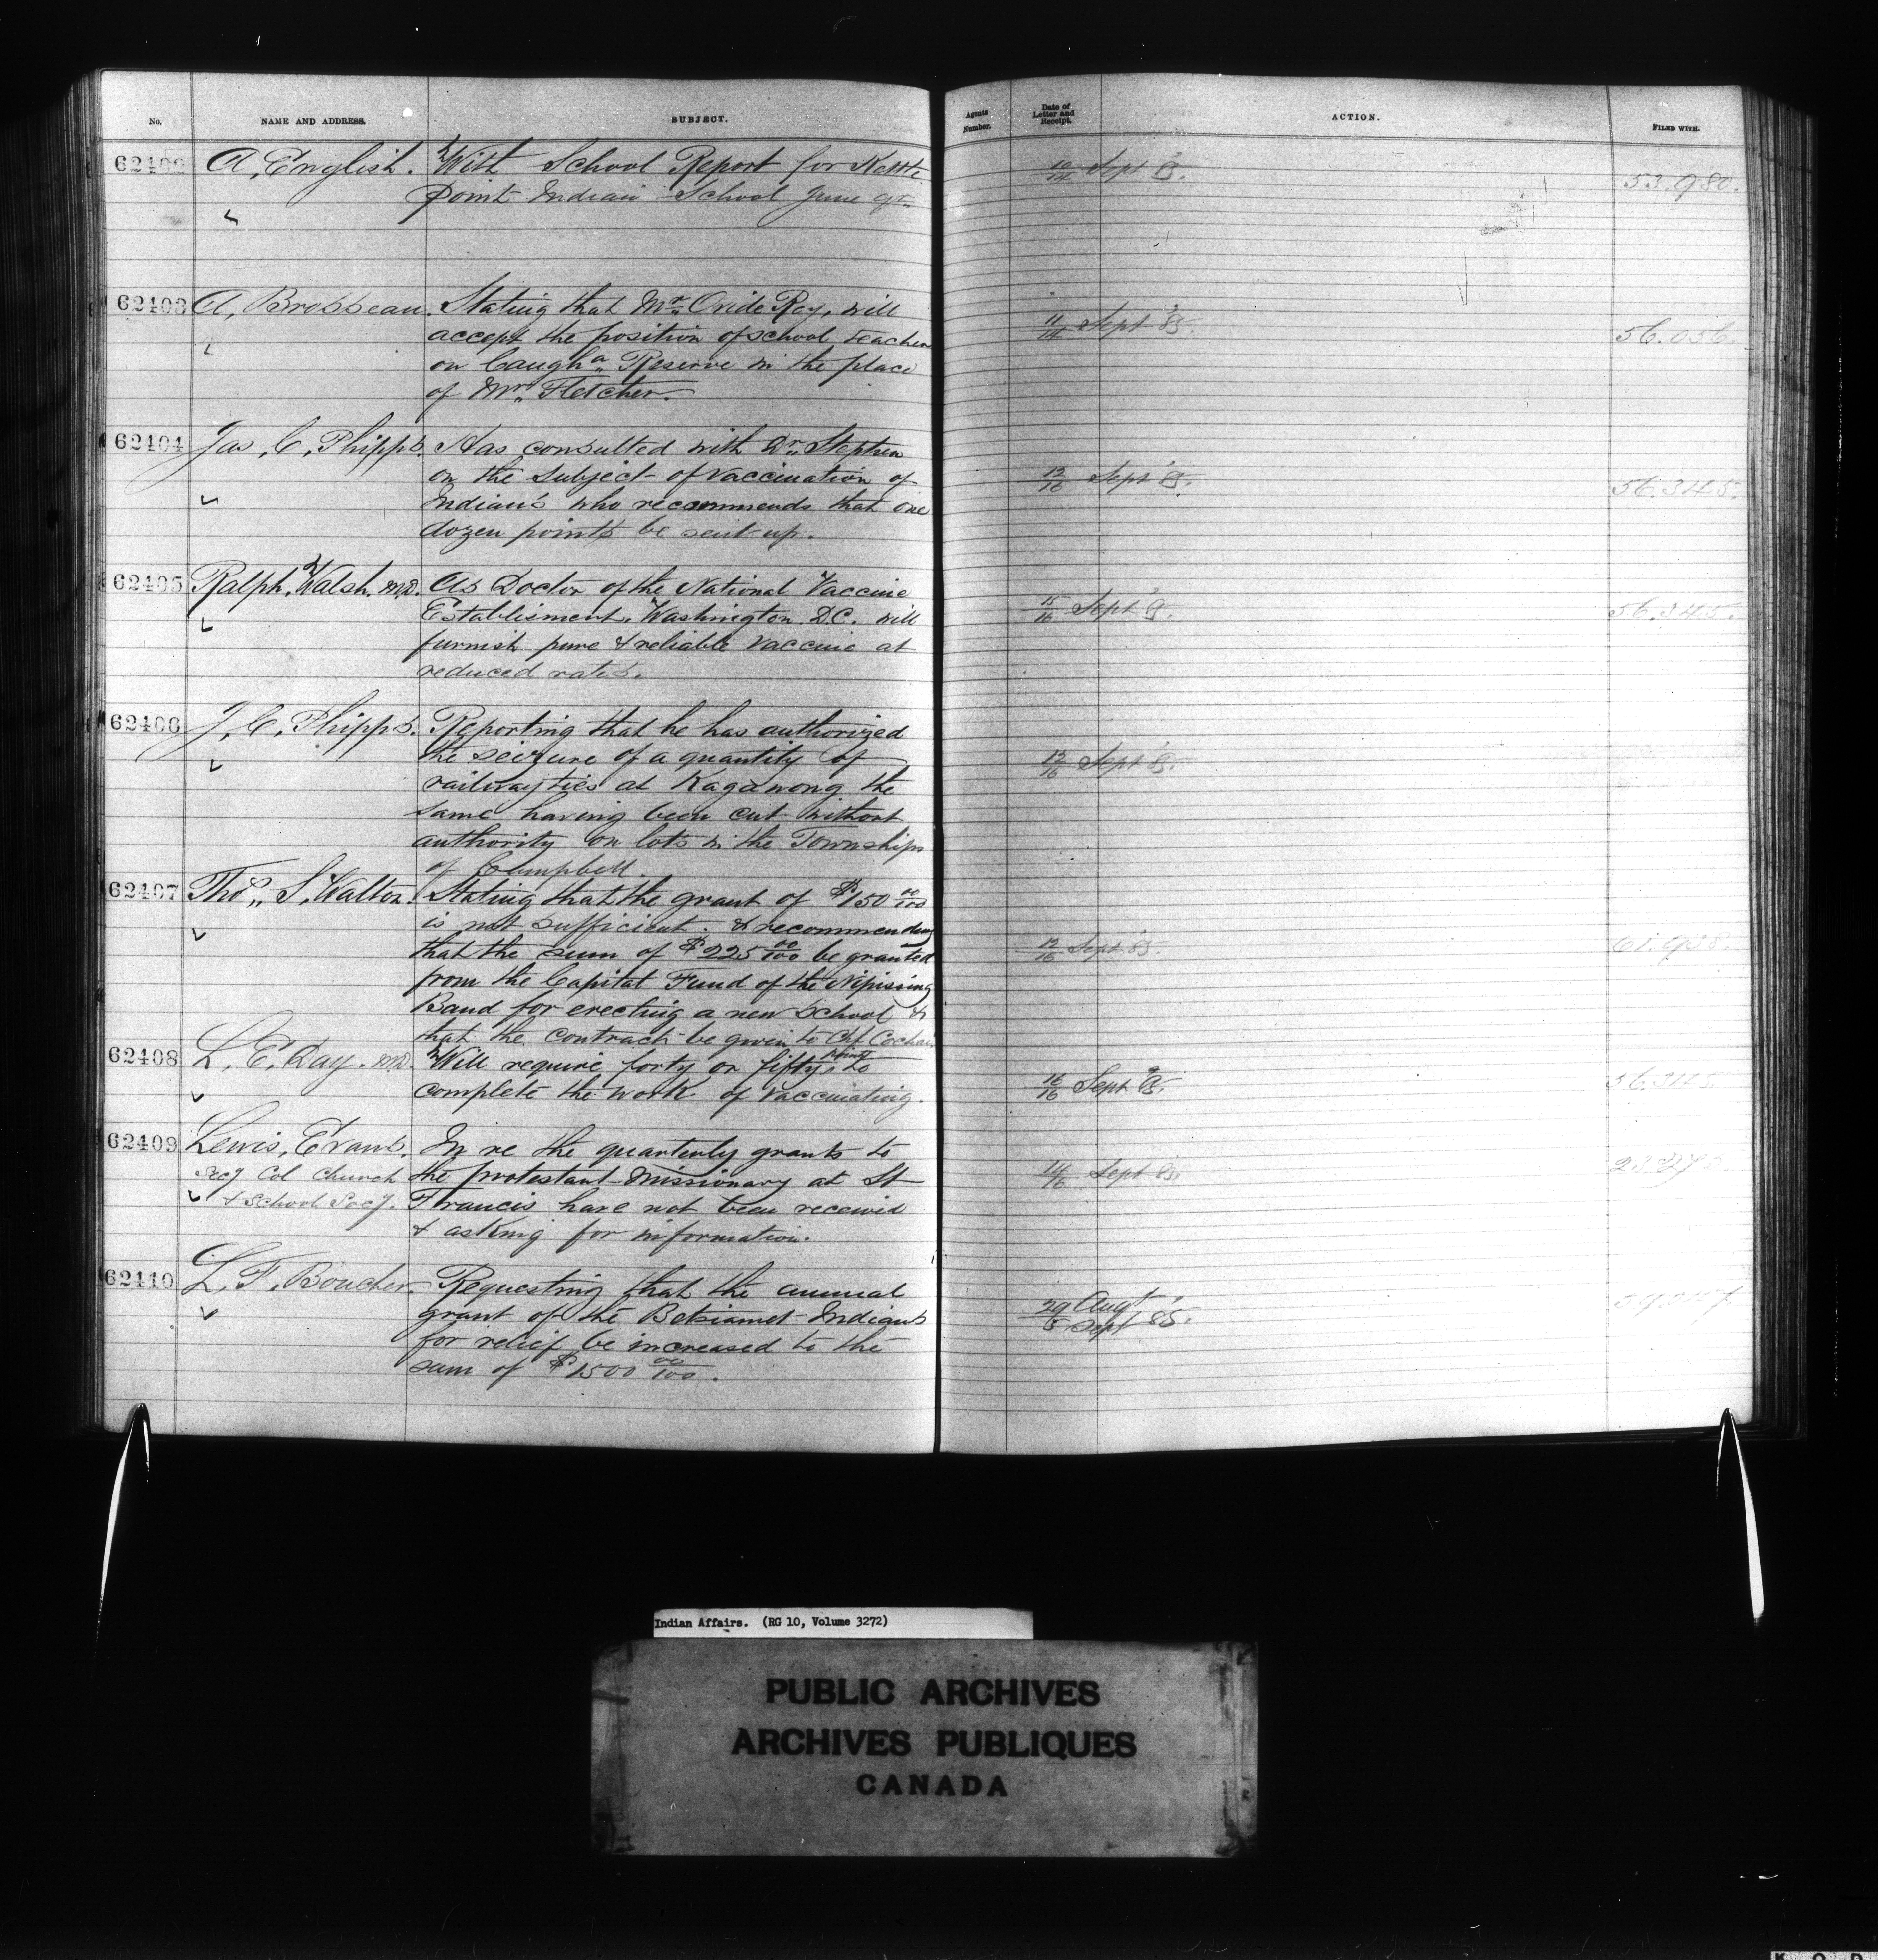 No. NAME AND ADDRESS. SUBJECT. Agents Number. Date of Letter and Receipt. ACTION. FILED WITH.
62402 A. English. With School Report for Kettle 10/14 Sept '85. 53.980.
Point Indian School June qr.
62403 A. Brosseau. Stating that Mr. Ovide Roy, will 11/14 Sept '85. 56.056.
accept the position of school teacher
on Caugha. Reserve in the place
of Mr. Fletcher.
62404 Jas. C. Phipps. Has consulted with Dr. Stephen 12/16 Sept '85. 56.345.
on the subject of vaccination of
Indian's who recommends that one
dozen points be sent up.
62405 Ralph Walsh. M.D. As Doctor of the National Vaccine 15/16 Sept '85. 56.345.
Establisment. Washington D.C. will
furnish pure & reliable vaccine at
reduced rates.
62406 J. C. Phipps. Reporting that he has authorized 12/16 Sept '85.
the seizure of a quantity of
railway ties at Kagawong the
same having been cut without
authority on lots in the Townships
of Campbell.
62407 Thos. S. Walton. Stating that the grant of $150 00/100 12/16 Sept '85. 61.938.
is not sufficient. & recommending
that the sum of $225 00/100 be granted
from the Capital Fund of the Nipissing
Band for erecting a new School &
that the contract be given to Chf.
62408 L. E. Day. M.D. Will require forty or fifty points to 16/16 Sept '85. 56.345
complete the work of vaccinating.
62409 Lewis, Evans. In re the quarterly grants to 14/16 Sept 85.
Secy Col Church the protestant Missionary at St
& School Socy. Francis have not been received
& asking for information.
62410 L. F. Boucher. Requesting that the annual 29 Augt / 5 Sept '85.
grant of the Betsiamet Indians
for relief be increased to the
sum of $1500 00/100.
Indian Affairs. (RG 10, Volume 3272)
PUBLIC ARCHIVES
ARCHIVES PUBLIQUES
CANADA